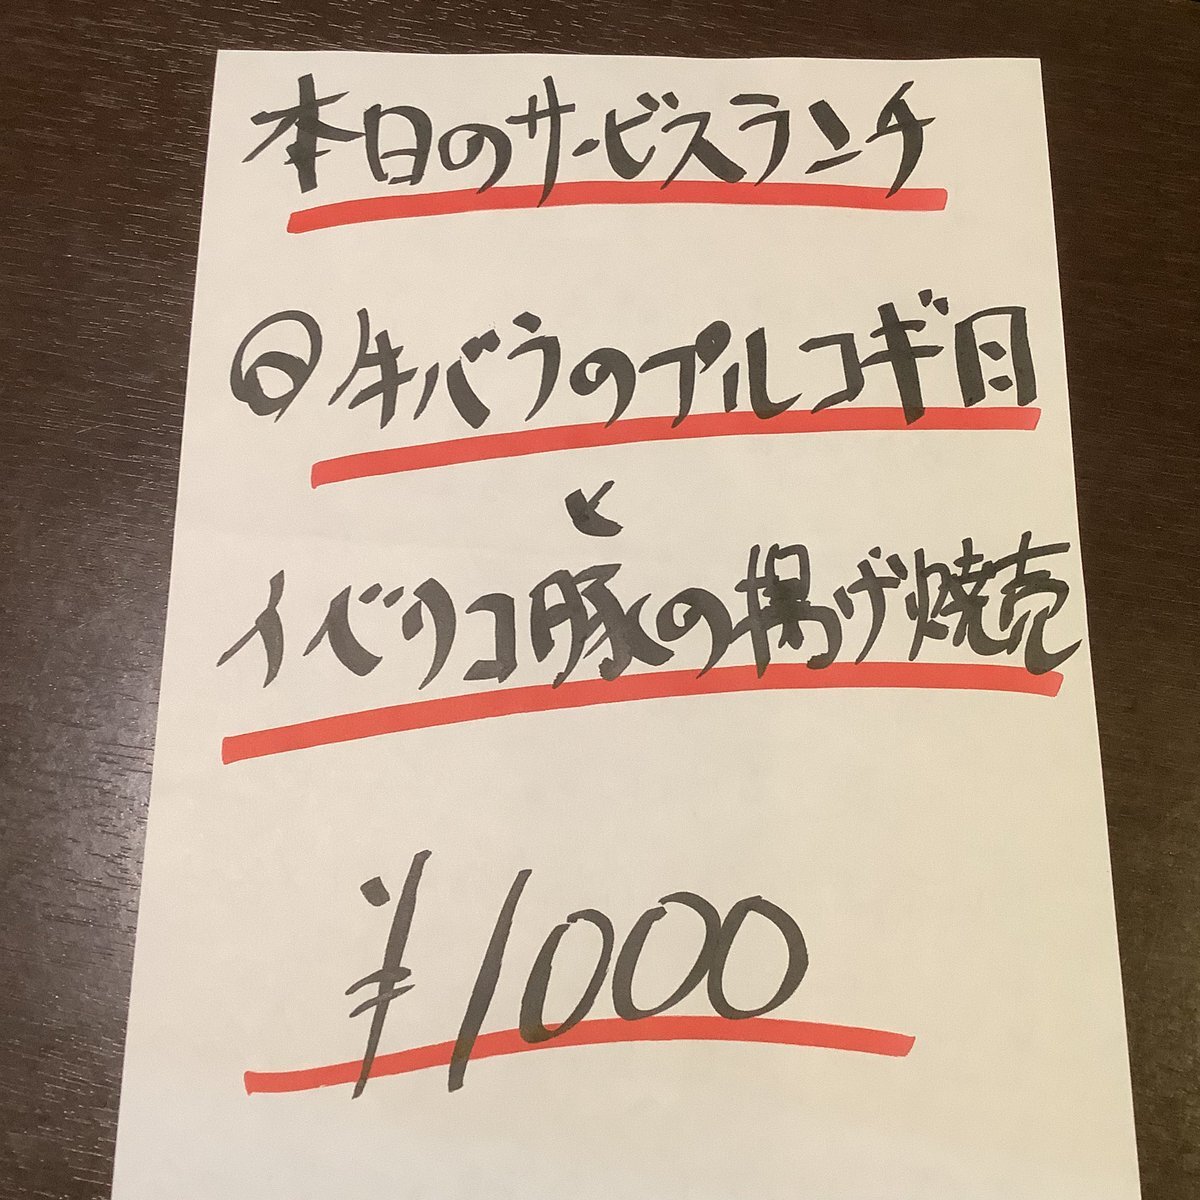 本日のサービスランチ
牛バラのプルコギ
と
イベリコ豚の揚げ焼売
¥1000